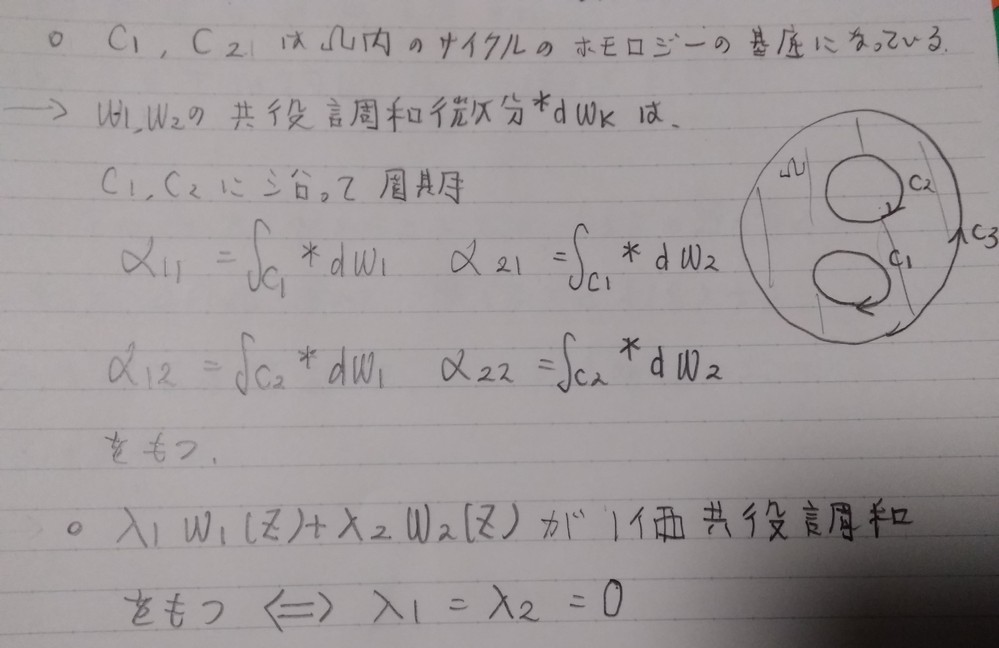 ○ C1, C2 は Ω内のサイクルのホモロジーの基底になっている.
→ W1,W2の共役調和微分*dWKは、
C1, C2に沿って周期
α11 = ∫C1 *dW1 α21 = ∫C1 *dW2
α12 = ∫C2 *dW1 α22 = ∫C2 *dW2
をもつ.
○ λ1 W1(Z)+λ2 W2(Z) が1価共役調和
をもつ <=> λ1 = λ2 = 0
Ω
C2
C3
C1